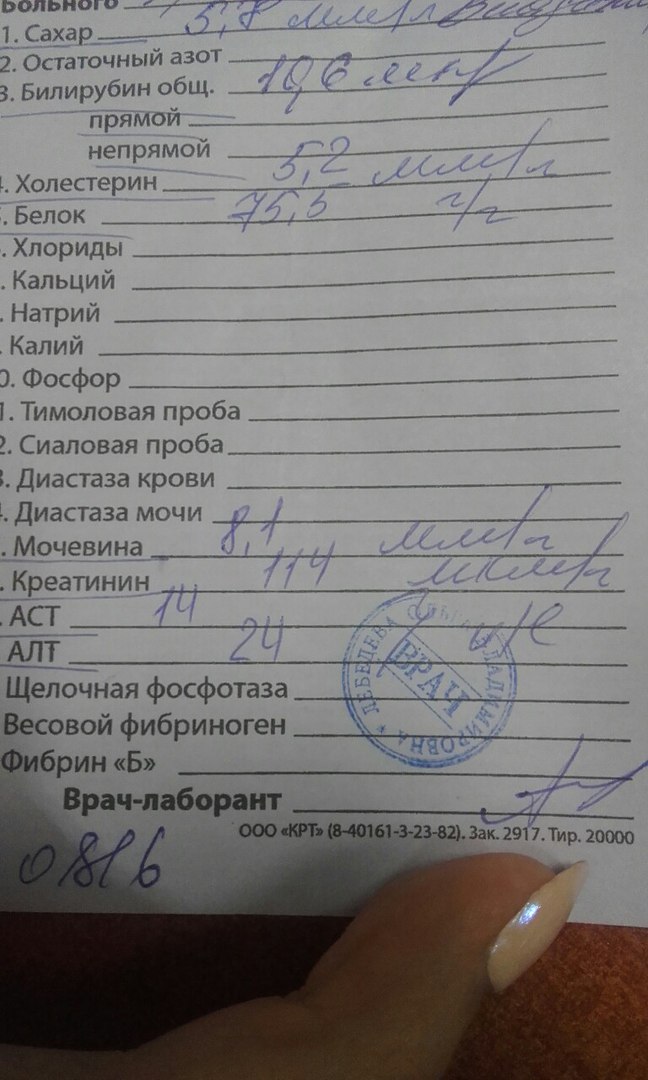 Больного
1. Сахар 5,8 ммл/л
2. Остаточный азот
3. Билирубин общ. 10,6
прямой
непрямой
4. Холестерин 5,2 ммл/л
. Белок 75,5 г/л
. Хлориды
. Кальций
. Натрий
. Калий
0. Фосфор
1. Тимоловая проба
2. Сиаловая проба
3. Диастаза крови
4. Диастаза мочи
. Мочевина 8,1 ммл/л
. Креатинин 114 мкмл/л
. АСТ 14
АЛТ 24
ЛЕБЕДЕВА ВЛАДИМИРОВНА
ВРАЧ
Щелочная фосфотаза
Весовой фибриноген
Фибрин «Б»
Врач-лаборант
ООО «КРТ» (8-40161-3-23-82). Зак. 2917. Тир. 20000